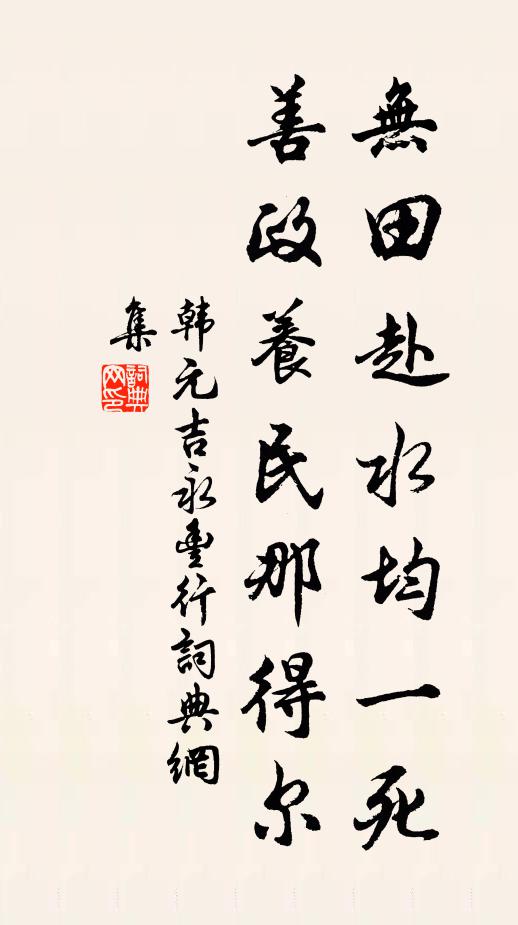 無田赴水均一死
善政養民那得尔
韩元吉永豐行詞典網
集
詞典网印